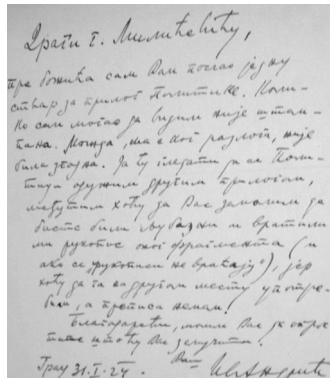 Драги г. Милићевићу,
пре Божића сам Вам послао једну
ствар за прилог Политике. Коли-
ко сам могао да видим није штам-
пана. Можда, ма с ког разлога, није
била згодна. Ја ћу гледати да се Поли-
тици одужим другим прилогом,
међутим хоћу да Вас замолим да
бисте били љубазни и вратили
ми рукопис оног фрагмента (и
ако се „рукописи не враћају“), јер
хоћу да га на другом месту употре-
бим, а преписа немам.
Благодарећи, молим Вас да опрос-
тите што Вас
Грац 31. I. 24. Ваш Ив. Андрић